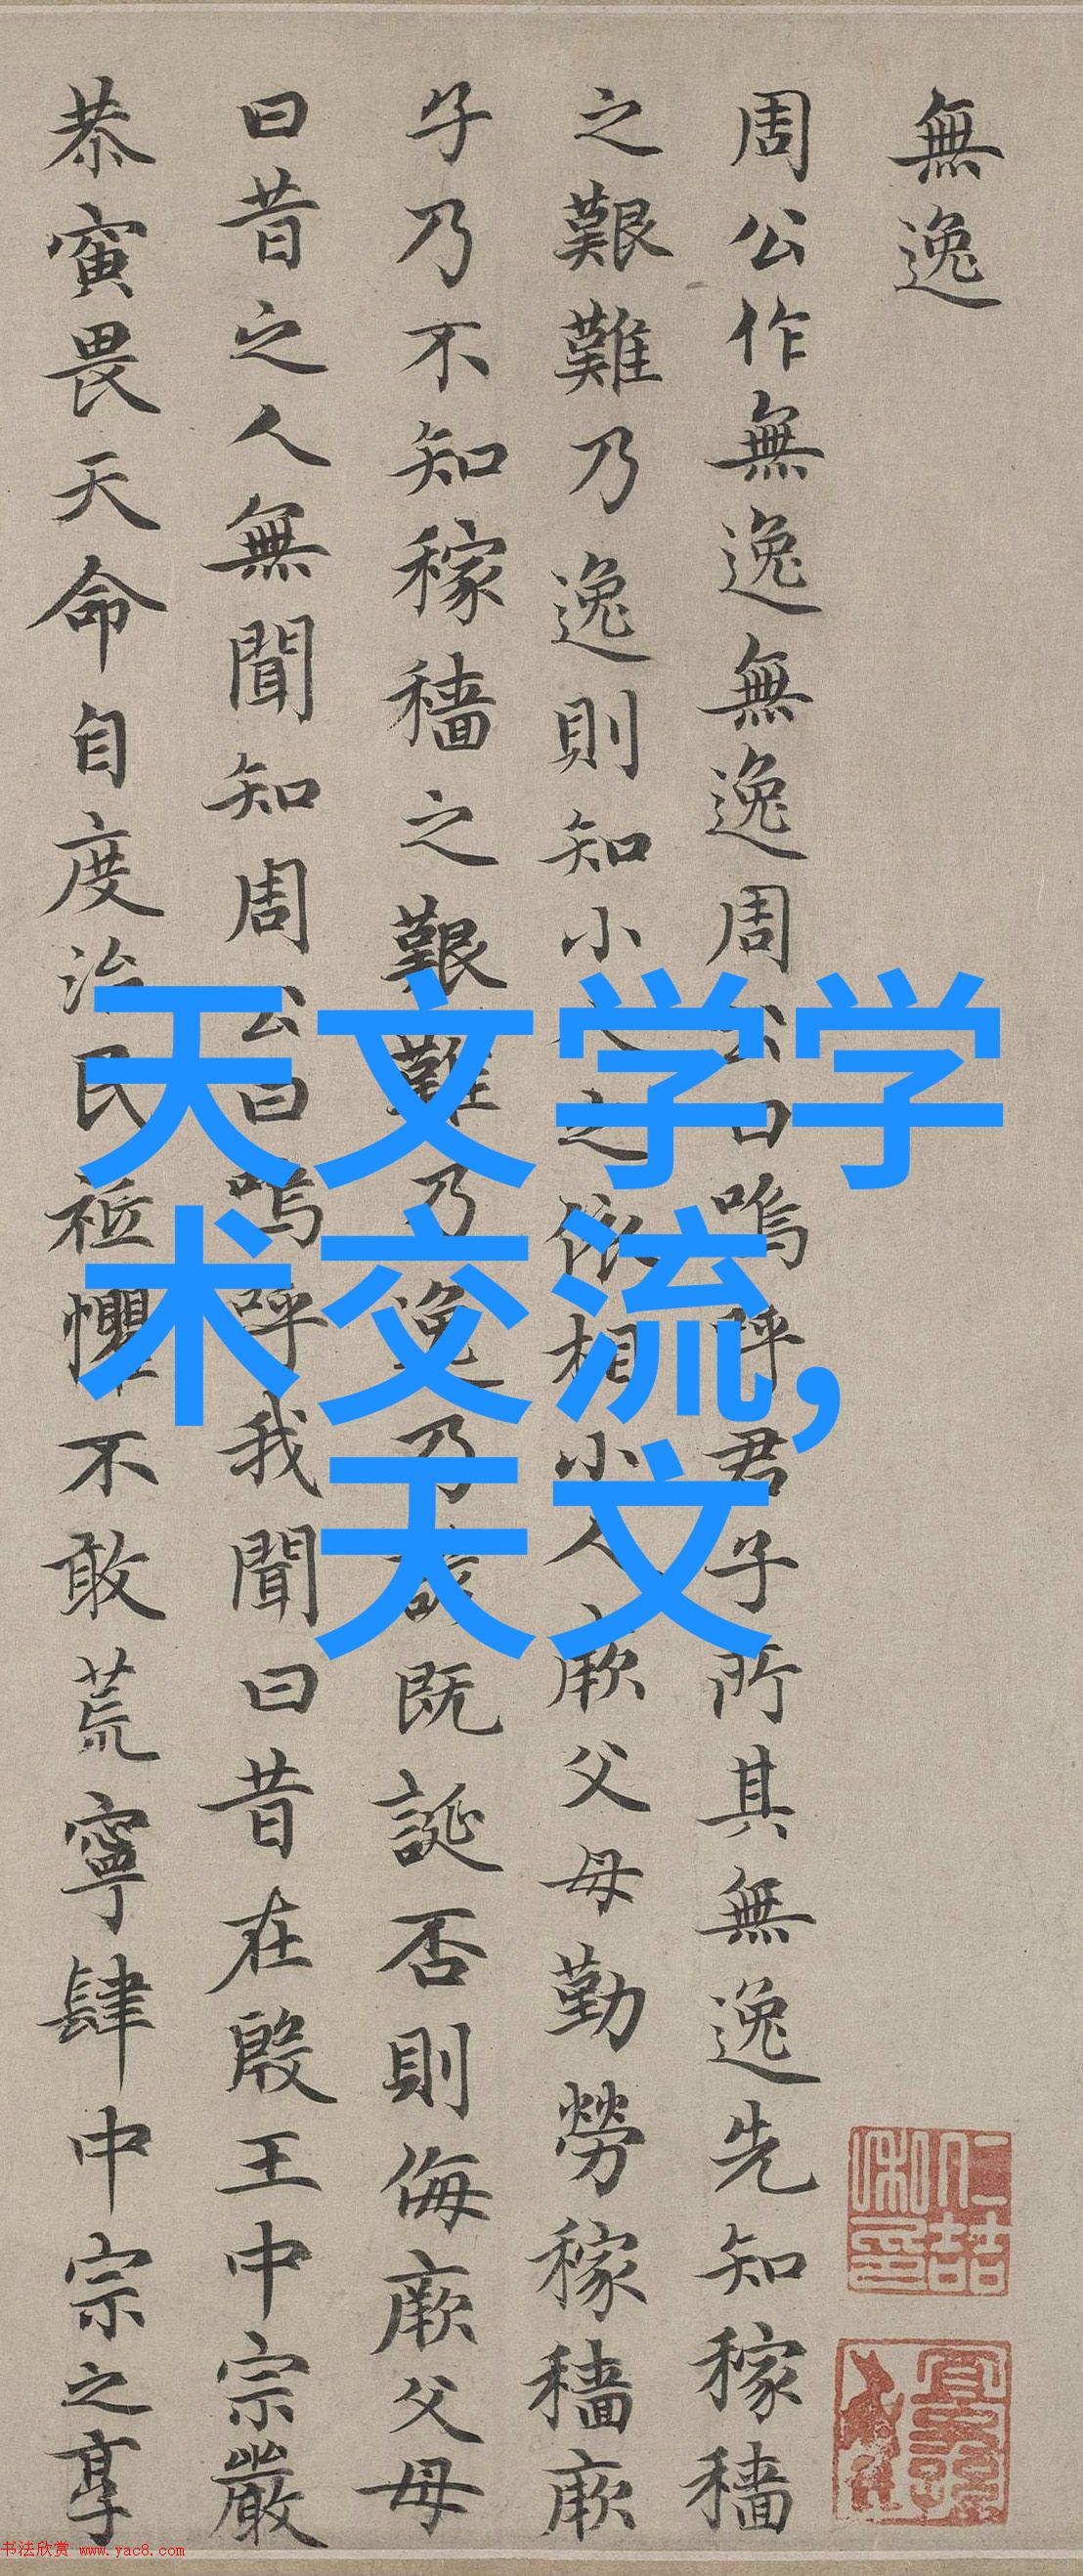 無逸
周公作無逸無逸周公曰嗚呼君子所其無逸先知稼穡
之艱難乃逸則知小人之依相小人厥父母勤勞稼穡厥
子乃不知稼穡之艱難乃逸乃諺既誕否則侮厥父母
曰昔之人無聞知周公曰嗚呼我聞曰昔在殷王中宗嚴
恭寅畏天命自度治民祗懼不敢荒寧肆中宗之享
天文学学
术交流,
天文
书法欣赏 www.yac8.com